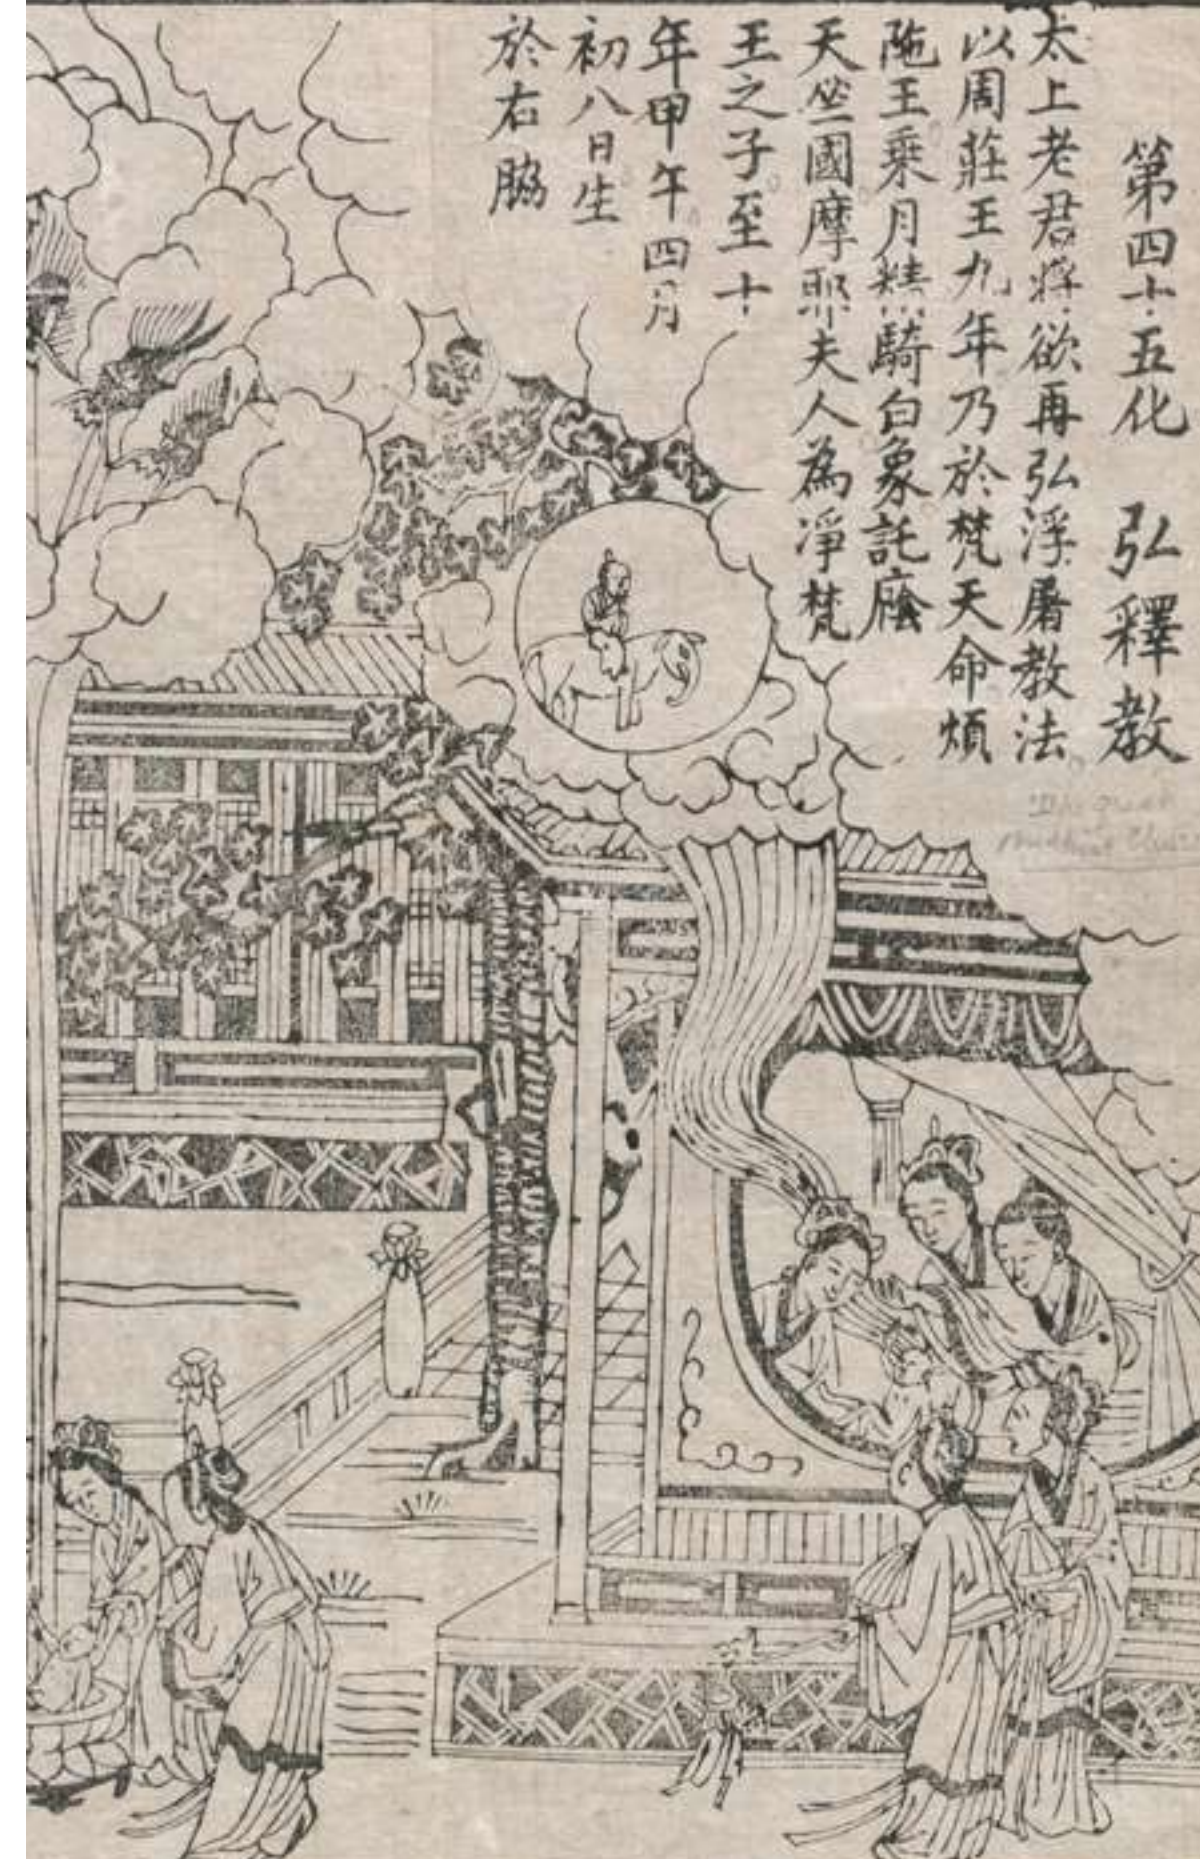 第四十五化 弘釋教
太上老君將欲再弘浮屠教法
以周莊王九年乃於梵天命煩
陁王乗月精騎白象託廕
天竺國摩耶夫人為淨梵
王之子至十
年甲午四月
初八日生
於右脇